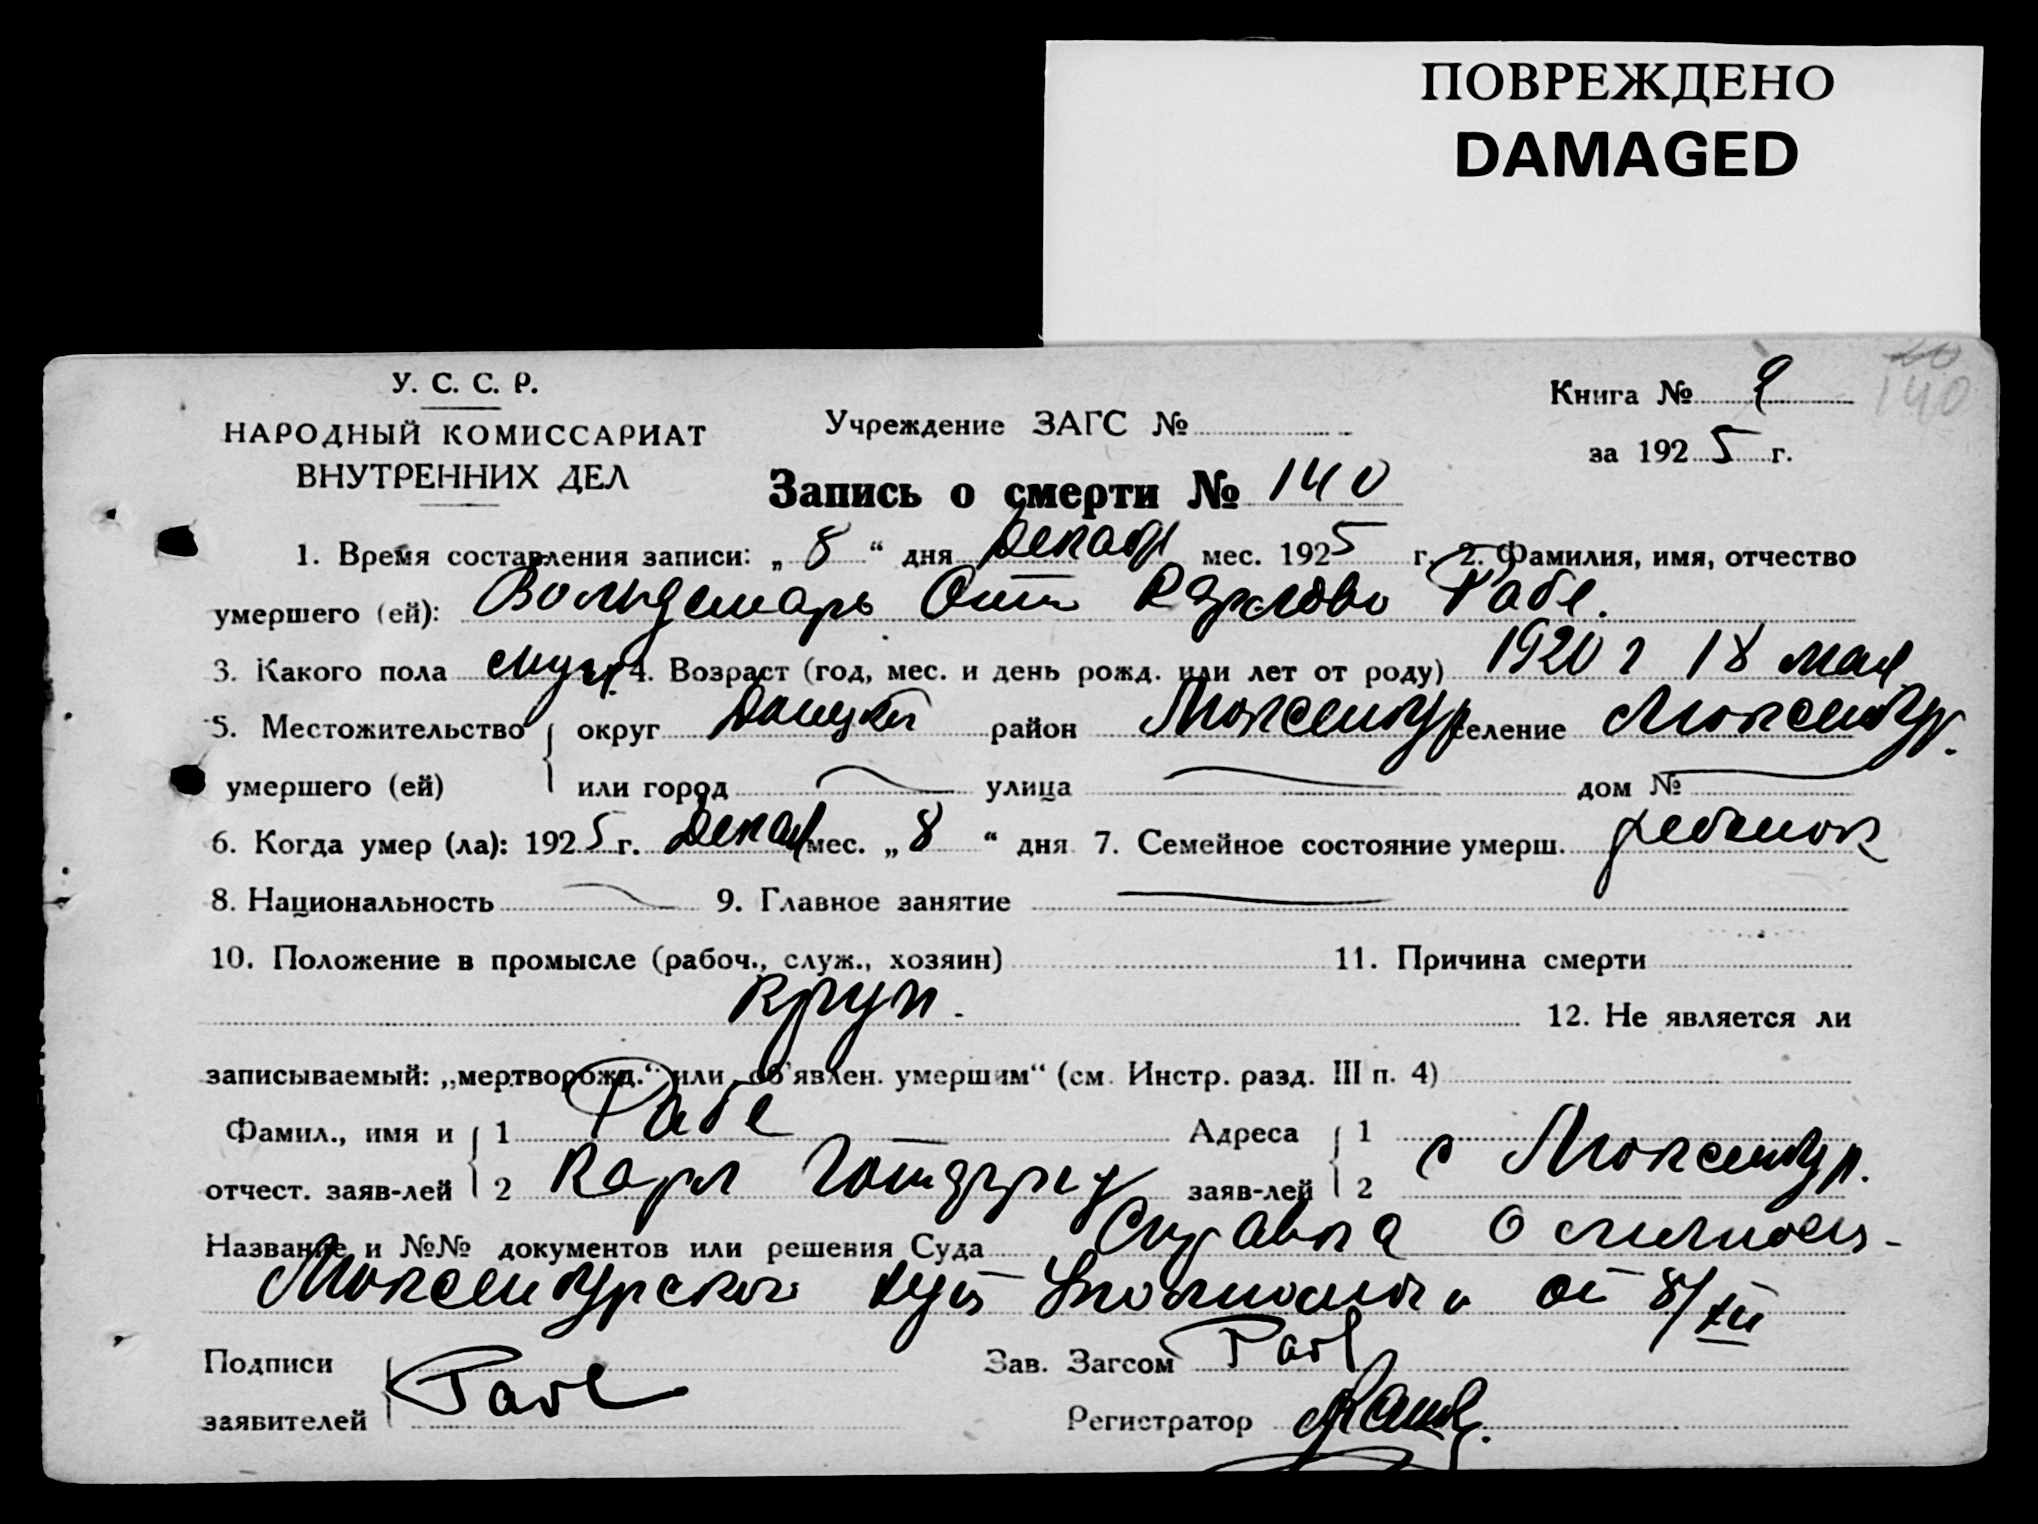 ПОВРЕЖДЕНО
DAMAGED
У. С. С. Р.
НАРОДНЫЙ КОМИССАРИАТ
ВНУТРЕННИХ ДЕЛ
Учреждение ЗАГС №
Книга № 9
140
за 1925 г.
Запись о смерти № 140
1. Время составления записи: „ 8 “ дня Декабр мес. 1925 г. 2. Фамилия, имя, отчество
умершего (ей): Вольдемарь Отто Карлово Рабе.
3. Какого пола муж. 4. Возраст (год, мес. и день рожд. или лет от роду) 1920 г 18 мая
5. Местожительство округ район Люксембур селение Люксембур.
умершего (ей) или город улица дом №
6. Когда умер (ла): 1925 г. Декаб мес. „ 8 “ дня 7. Семейное состояние умерш. ребенок
8. Национальность 9. Главное занятие
10. Положение в промысле (рабоч., служ., хозяин) 11. Причина смерти
Круп. 12. Не является ли
записываемый: „мертворожд.“ или „об'явлен. умершим“ (см. Инстр. разд. III п. 4)
Фамил., имя и 1 Рабе Адреса 1
отчест. заяв-лей 2 Карл Готфрид заяв-лей 2 с Люксембур.
Название и №№ документов или решения Суда Справка о личности
Люксембурского от 8/XII
Подписи Рабе Зав. Загсом
заявителей Регистратор